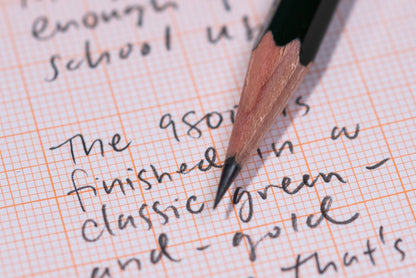 enough
school
The 9801 is
finished in a
classic green-
and-gold
that's